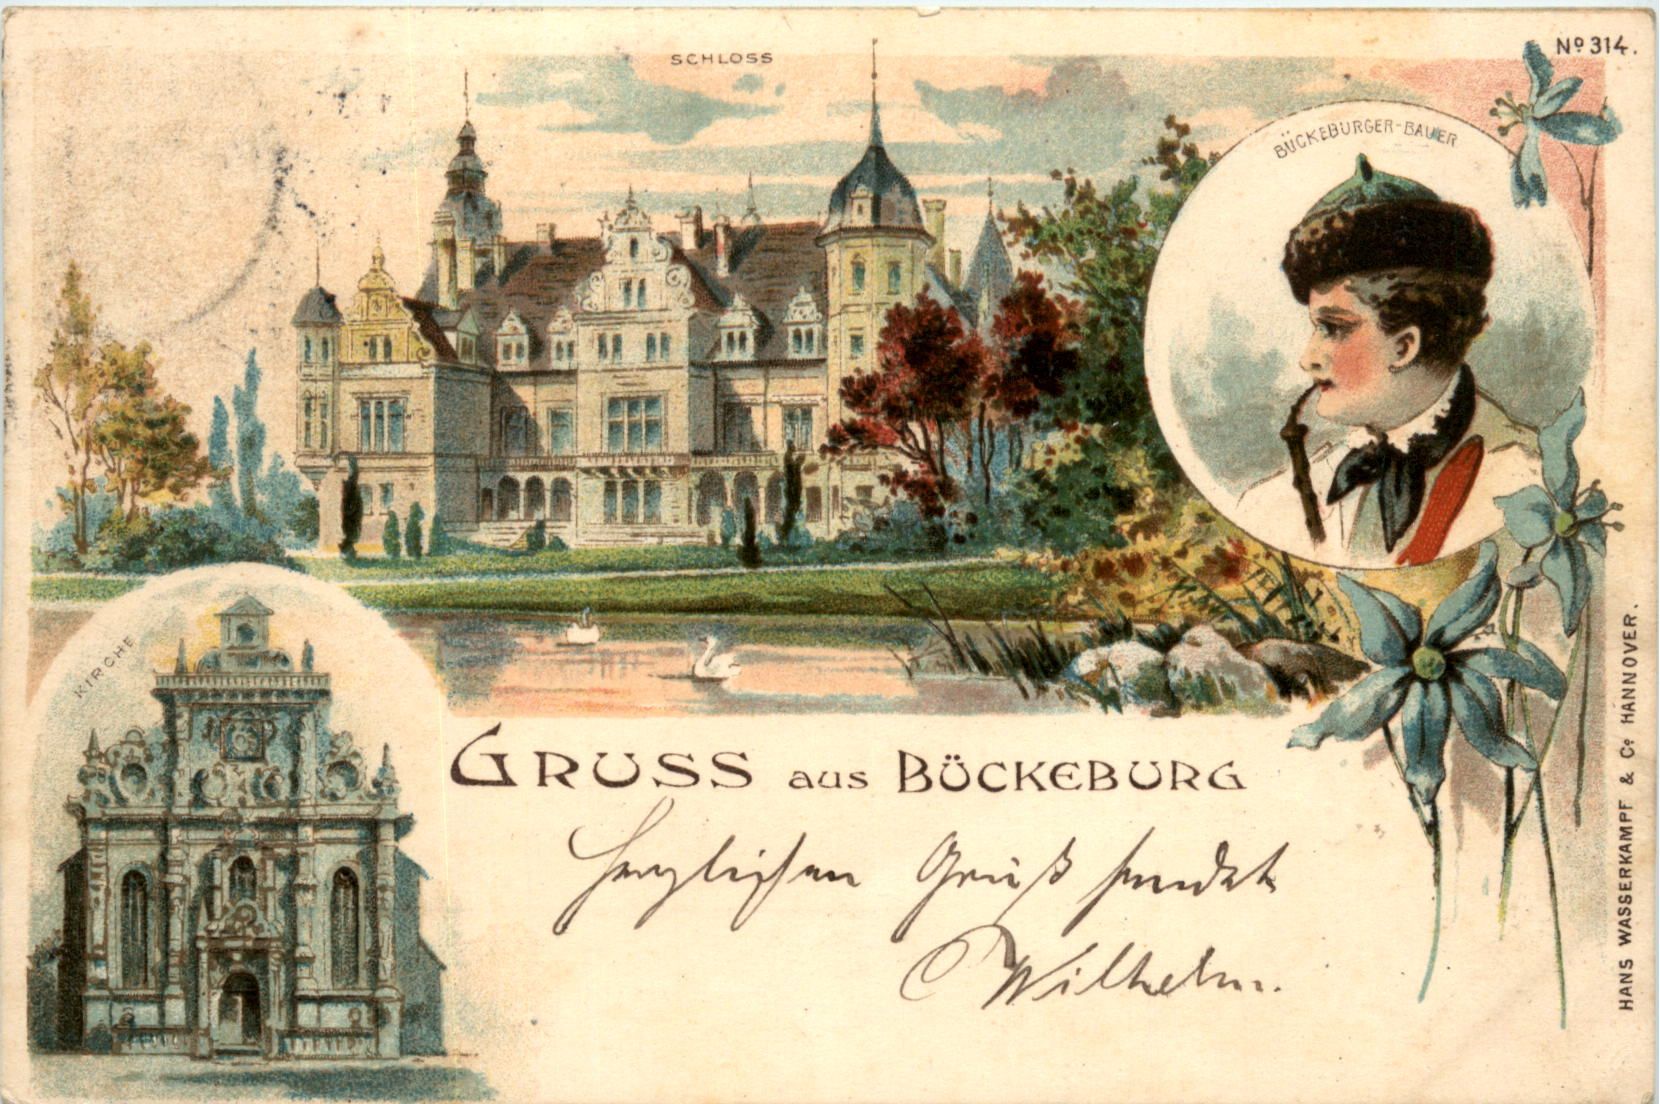 SCHLOSS
Nº 314.
BÜCKEBURGER-BAUER
KIRCHE
GRUSS aus BÜCKEBURG
Herzlichen Gruß sendet
Wilhelm.
HANS WASSERKAMPF & Cº HANNOVER.